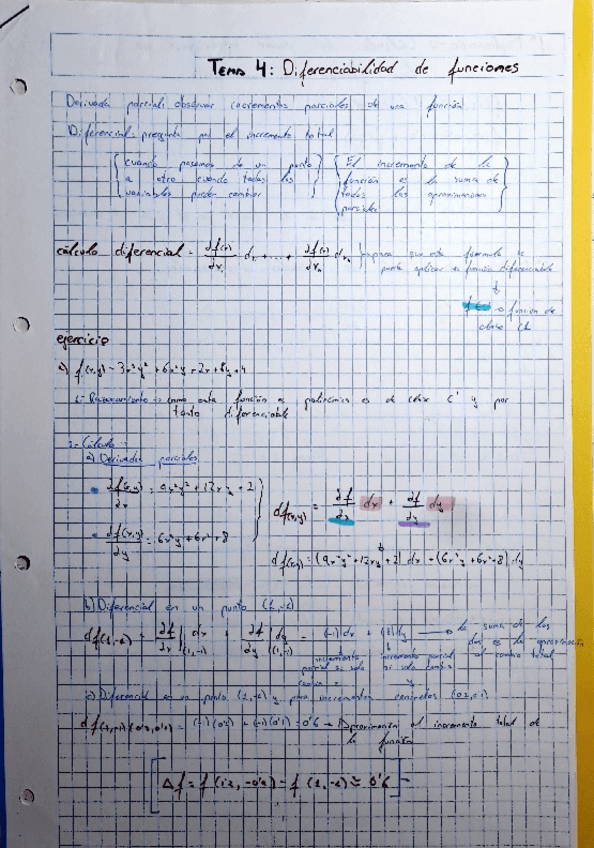 Tema 4: Diferenciabilidad de funciones
Derivada parcial: observar incrementos parciales de una función
Diferencial: pregunta por el incremento total
cuando pasamos de un punto
a otro cuando todas las
variables pueden cambiar
El incremento de la
función es la suma de
todas las aproximaciones
parciales
cálculo diferencial = ∂f(x)/∂x₁ dx₁ + ... + ∂f(x)/∂xₙ dxₙ
para que esta fórmula se
pueda aplicar es función diferenciable
función de
clase C1
ejercicio
a) f(x,y) = 3x³y² + 6x²y + 2x + 8y + 4
1- Razonamiento: como esta función es polinómica es de clase C¹ y por
tanto diferenciable
2- Cálculo:
a) Derivadas parciales
∂f(x,y)/∂x = 9x²y² + 12xy + 2
∂f(x,y)/∂y = 6x³y + 6x² + 8
df(x,y) = ∂f/∂x dx + ∂f/∂y dy
df(x,y) = (9x²y² + 12xy + 2) dx + (6x³y + 6x² + 8) dy
b) Diferencial en un punto (1,-1)
df(1,-1) = ∂f/∂x|(1,-1) dx + ∂f/∂y|(1,-1) dy = (-1) dx + (8) dy → la suma de los
dos es la aproximación
al cambio total
incremento parcial si solo
incremento parcial
si solo cambia
y
c) Diferencial en un punto (1,-1) y para incrementos concretos (0'2, 0'1)
df(1,-1)(0'2, 0'1) = (-1)(0'2) + (0'1) = 0'6 → Aproximación al incremento total de
la función
Δf = f(1'2, -0'9) - f(1,-1) ≈ 0'6